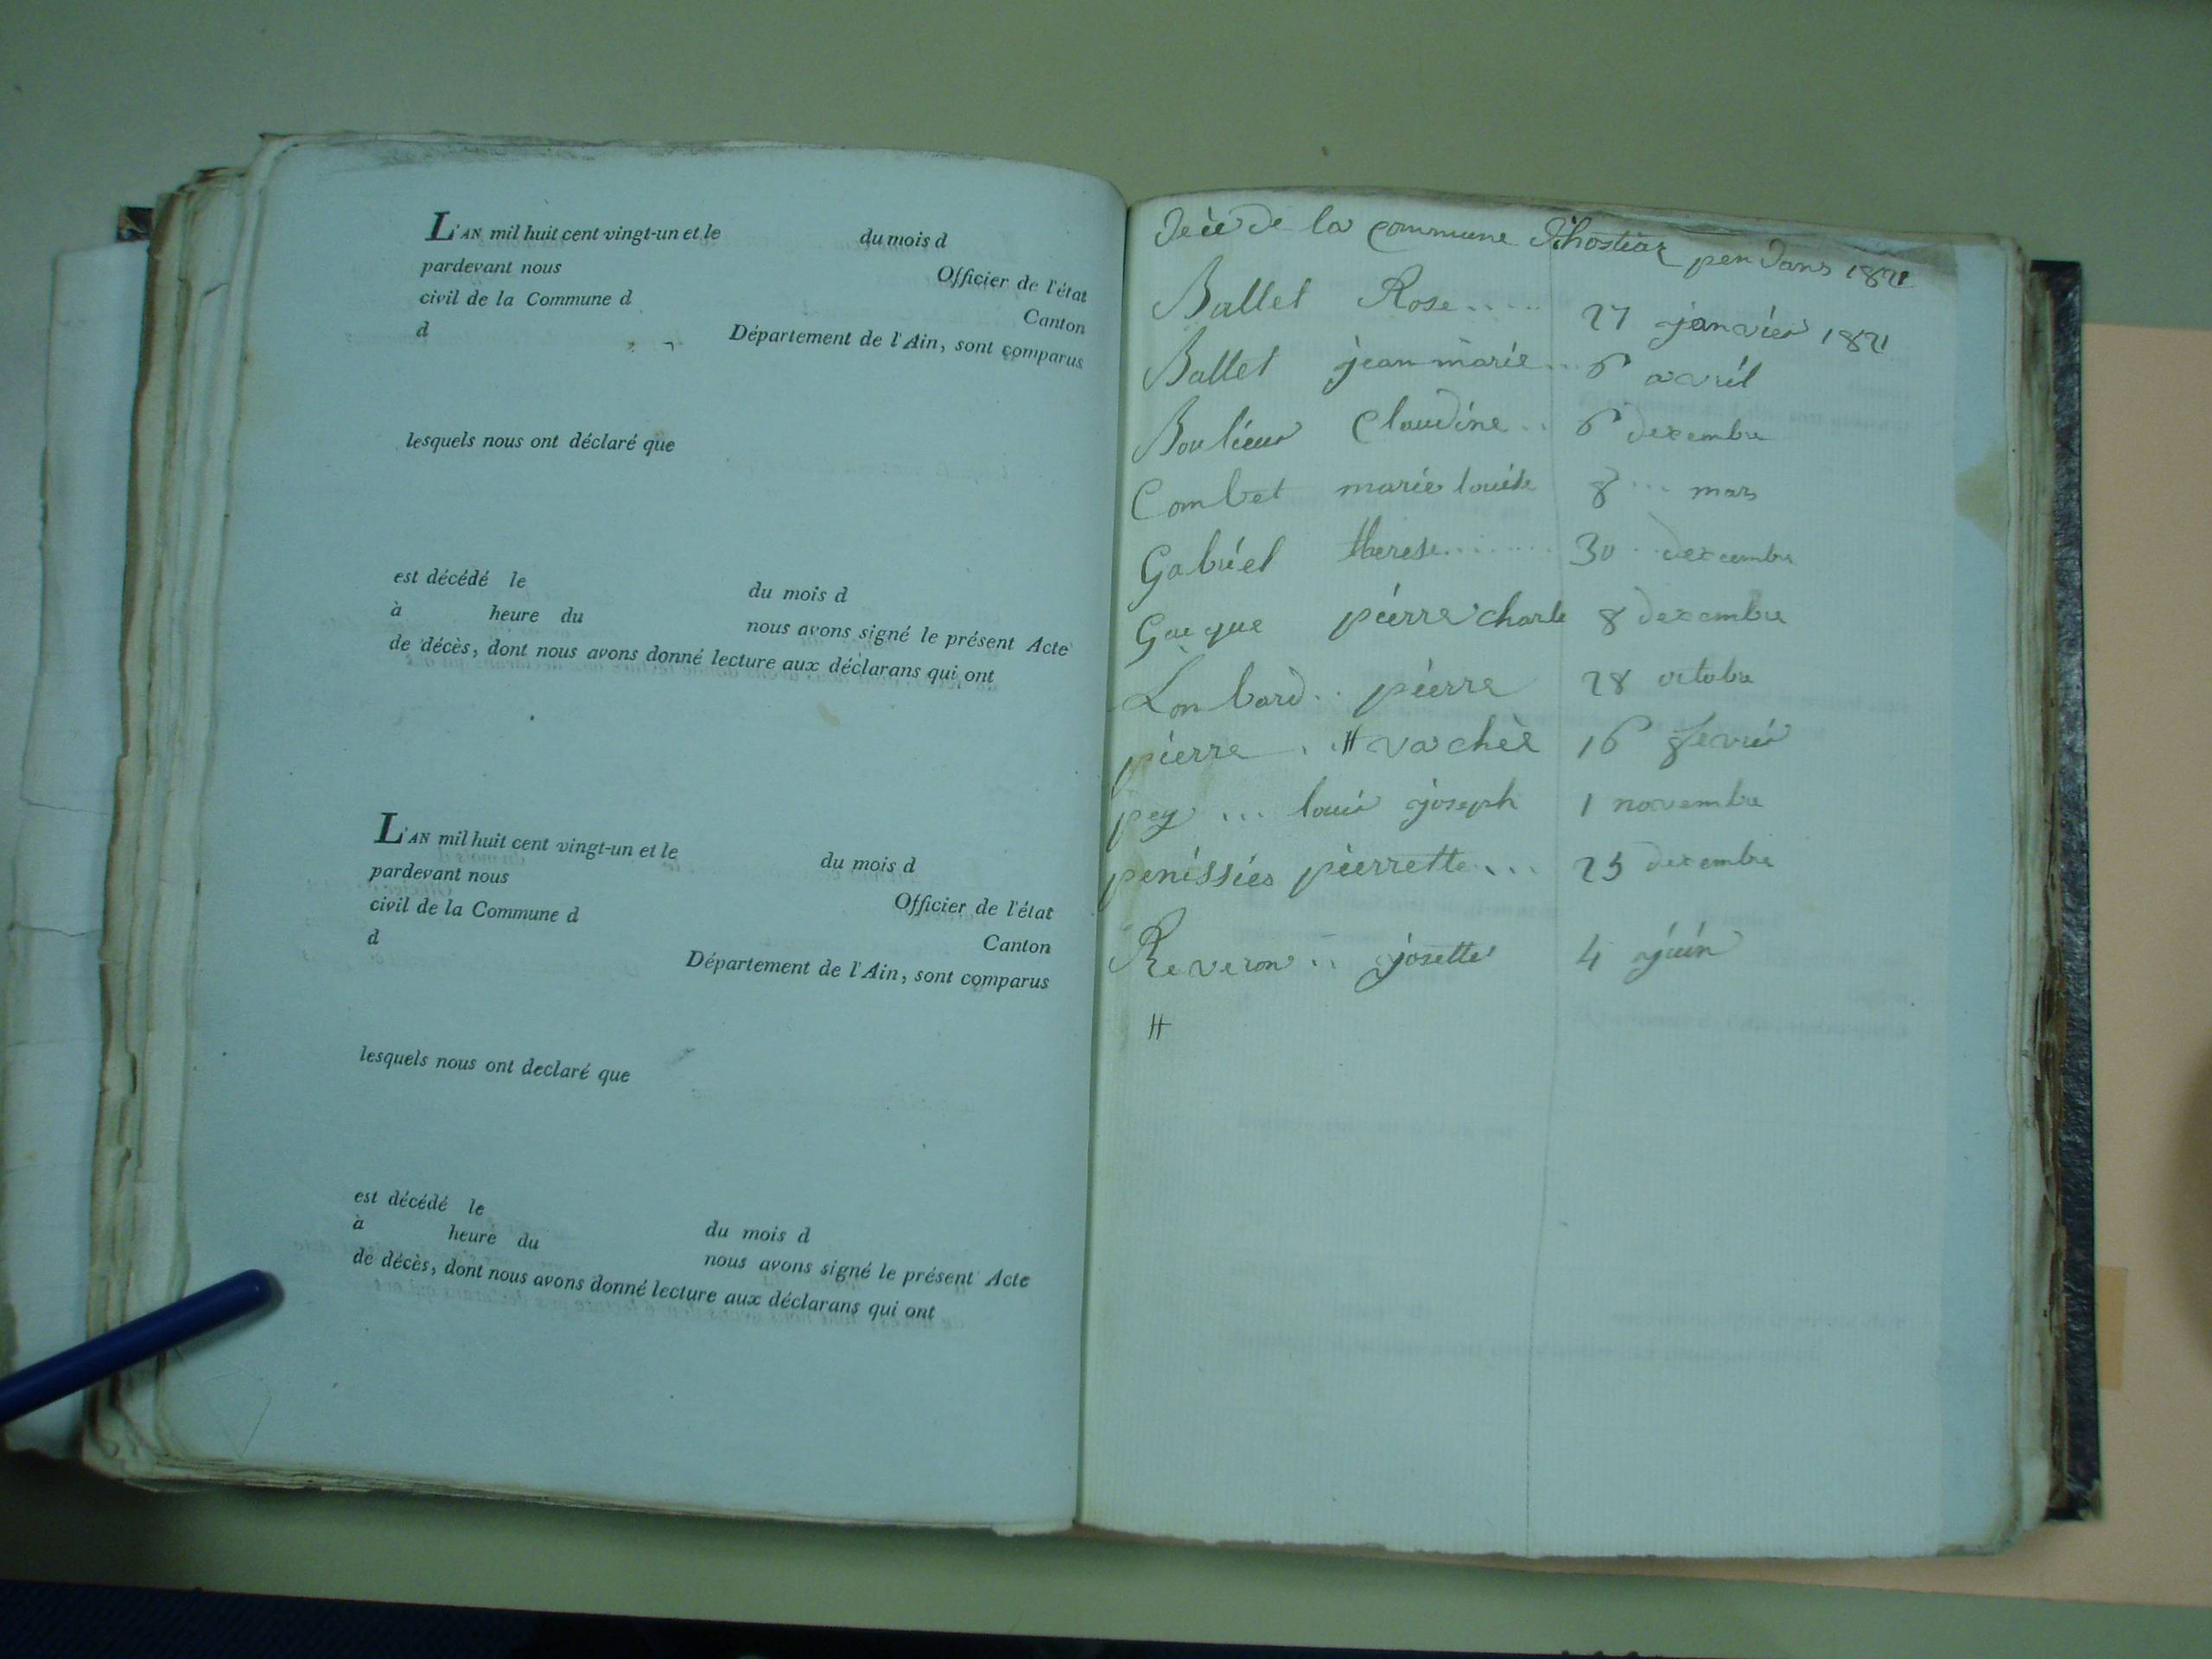 L'AN mil huit cent vingt-un et le du mois d
pardevant nous Officier de l'état
civil de la Commune d Canton
d Département de l'Ain, sont comparus
lesquels nous ont déclaré que
est décédé le du mois d
à heure du nous avons signé le présent Acte
de décès, dont nous avons donné lecture aux déclarans qui ont
L'AN mil huit cent vingt-un et le du mois d
pardevant nous Officier de l'état
civil de la Commune d Canton
d Département de l'Ain, sont comparus
lesquels nous ont declaré que
est décédé le du mois d
à heure du nous avons signé le présent Acte
de décès, dont nous avons donné lecture aux déclarans qui ont
de la commune d'hostiaz pendans 1821
Ballet Rose 27 janvier 1821
Ballet jean marie 6 avril
Boulieu Claudine 6 decembre
Combet marie louise 8 mars
Gabriel therese 30 decembre
pierre charle 8 decembre
Lombard pierre 28 octobre
pierre # vachèe 16 fevrier
pey louis joseph 1 novembre
penissies pierrette 25 decembre
Reveron josette 4 juin
#